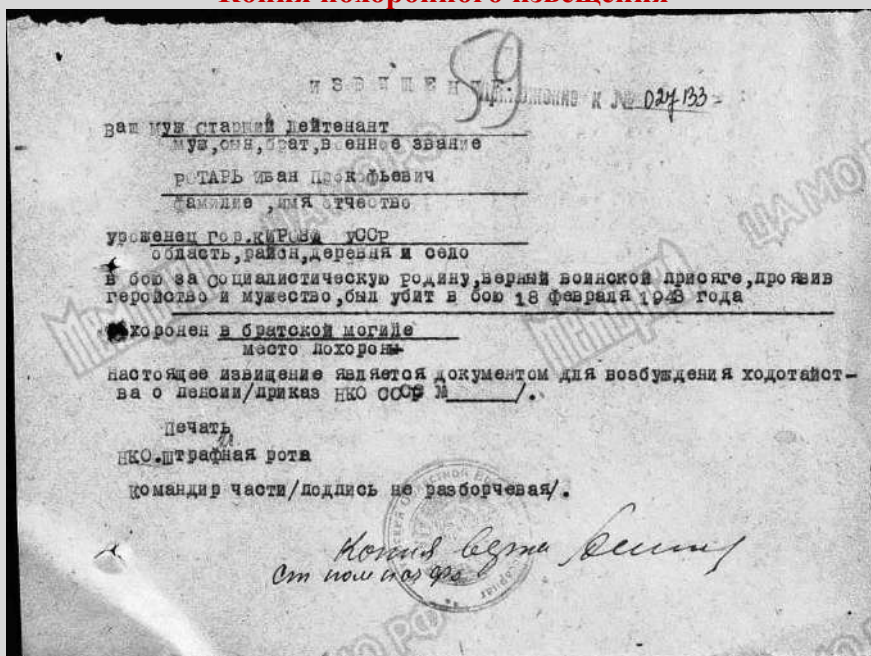 Копия похоронного извещения
59
ИЗВИЩЕНИЕ. К № 027133
Ваш муж старший лейтенант
муж, сын, брат, военное звание
РОТАРЬ Иван Прокофьевич
фамилие ,имя отчество
уроженец гор.КИРОВА УССР
область,район,деревня и село
в бою за социалистическую родину,верный воинской присяге,проявив
геройство и мужество,был убит в бою 18 февраля 1943 года
похоронен в братской могиле
место похорон
настоящее извищение является документом для возбуждения ходотайст-
ва о пенсии/приказ НКО СССР №______/.
Печать
НКО.штрафная рота
Командир части/подпись не разборчевая/.
Копия верна
Мемориал
ЦАМО РФ